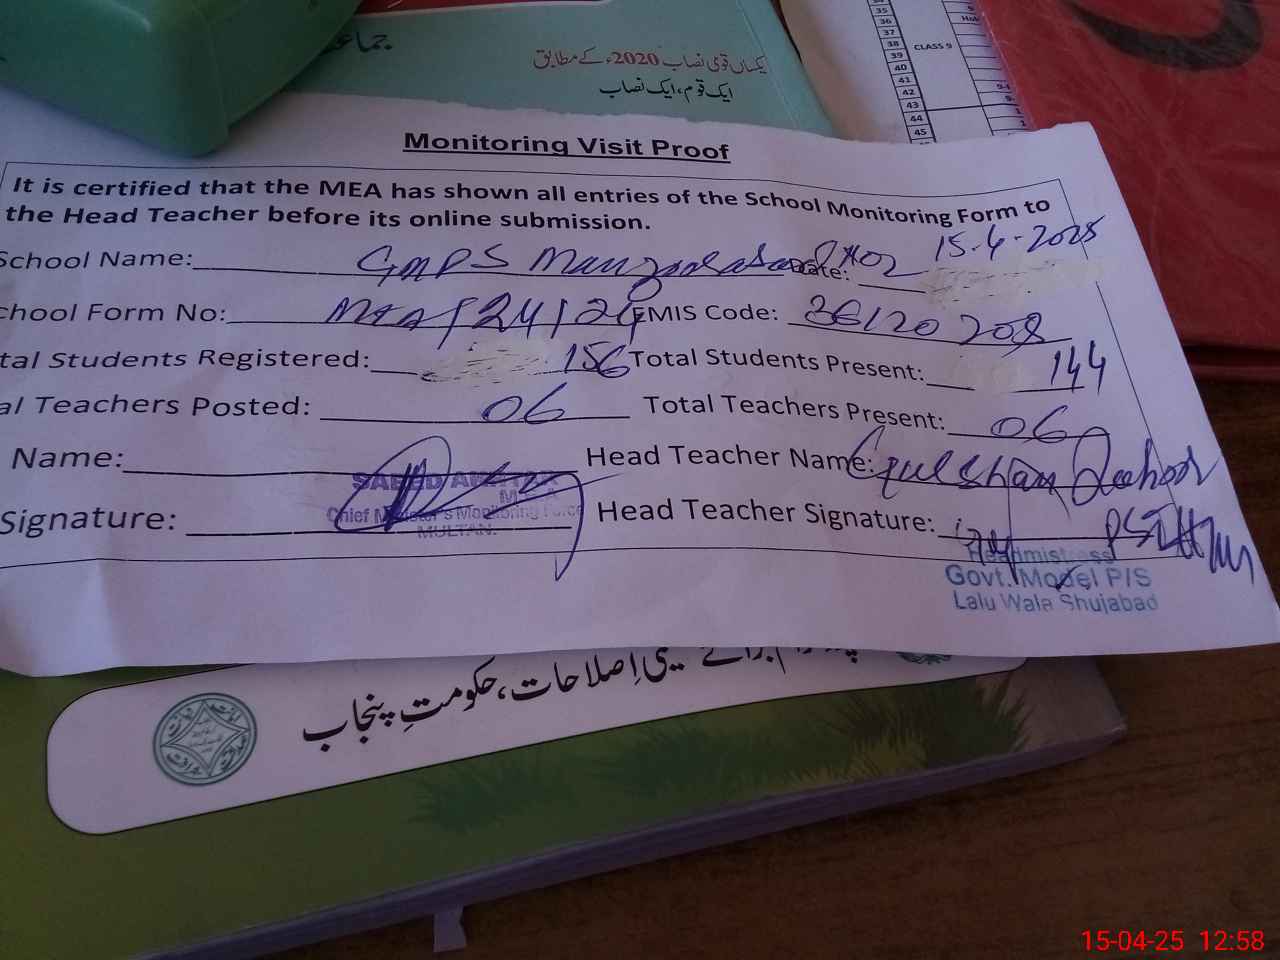 یکساں قومی نصاب 2020ء کے مطابق
ایک قوم، ایک نصاب
35
36
37
38
39
40
41
42
43
44
45
CLASS 9
Monitoring Visit Proof
It is certified that the MEA has shown all entries of the School Monitoring Form to
the Head Teacher before its online submission.
School Name: GMPS Date: 15-4-2025
chool Form No: MEA/24/24 EMIS Code: 36120208
tal Students Registered: 156 Total Students Present: 144
al Teachers Posted: 06 Total Teachers Present: 06
Name: SAEED AKHTAR Head Teacher Name: Gulshan
M.E.A
Chief Minister's Monitoring Force
MULTAN.
Signature: Head Teacher Signature:
Headmistress
Govt. Model P/S
Lalu Wala Shujabad
اصلاحات، حکومتِ پنجاب
15-04-25 12:58